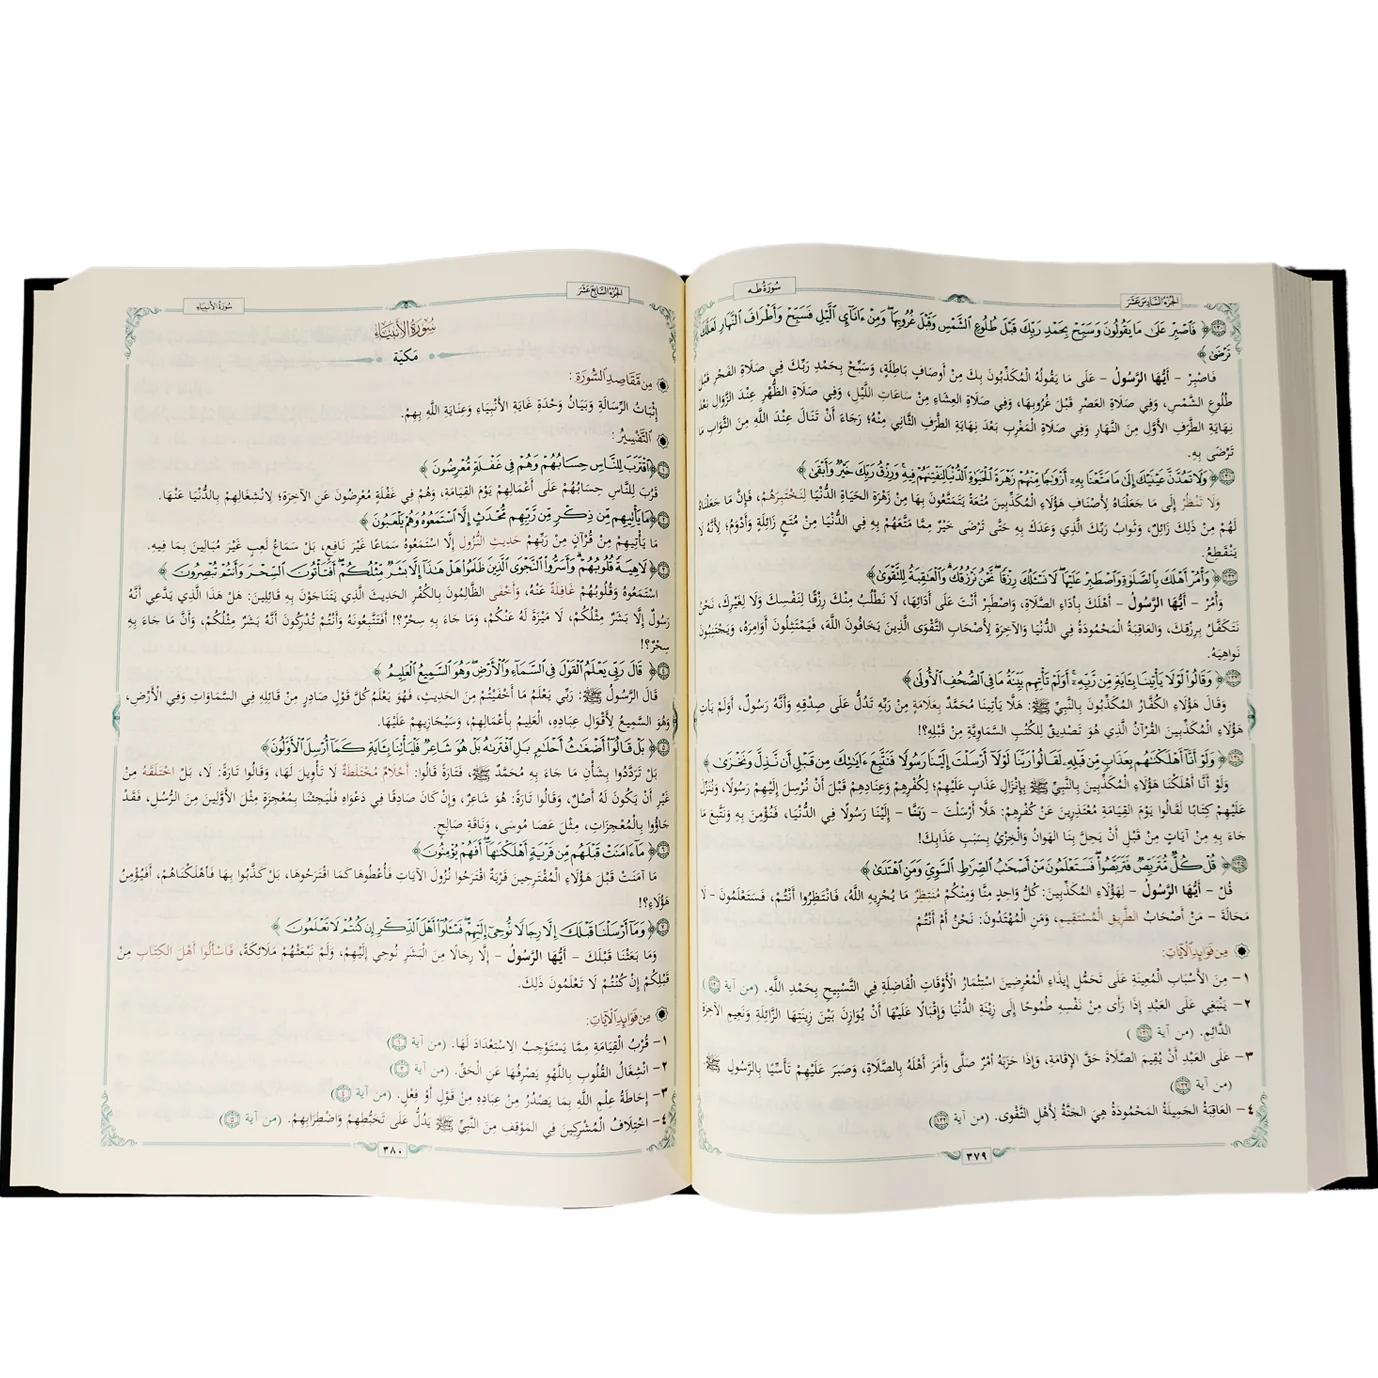 الجزء السادس عشر
سورة طه
﴿١٣٠﴾ ﴿فَٱصۡبِرۡ عَلَىٰ مَا يَقُولُونَ وَسَبِّحۡ بِحَمۡدِ رَبِّكَ قَبۡلَ طُلُوعِ ٱلشَّمۡسِ وَقَبۡلَ غُرُوبِهَاۖ وَمِنۡ ءَانَآيِٕ ٱلَّيۡلِ فَسَبِّحۡ وَأَطۡرَافَ ٱلنَّهَارِ لَعَلَّكَ
تَرۡضَىٰ﴾
فَاصْبِرْ - أَيُّهَا الرَّسُولُ - عَلَى مَا يَقُولُهُ الْمُكَذِّبُونَ بِكَ مِنْ أَوْصَافٍ بَاطِلَةٍ، وَسَبِّحْ بِحَمْدِ رَبِّكَ فِي صَلَاةِ الفَجْرِ قَبْلَ
طُلُوعِ الشَّمْسِ، وَفِي صَلَاةِ العَصْرِ قَبْلَ غُرُوبِهَا، وَفِي صَلَاةِ العِشَاءِ مِنْ سَاعَاتِ اللَّيْلِ، وَفِي صَلَاةِ الظُّهْرِ عِنْدَ الزَّوَالِ بَعْدَ
نِهَايَةِ الطَّرَفِ الأَوَّلِ مِنَ النَّهَارِ وَفِي صَلَاةِ المَغْرِبِ بَعْدَ نِهَايَةِ الطَّرَفِ الثَّانِي مِنْهُ؛ رَجَاءَ أَنْ تَنَالَ عِنْدَ اللَّهِ مِنَ الثَّوَابِ مَا
تَرْضَى بِهِ.
﴿١٣١﴾ ﴿وَلَا تَمُدَّنَّ عَيۡنَيۡكَ إِلَىٰ مَا مَتَّعۡنَا بِهِۦٓ أَزۡوَٰجٗا مِّنۡهُمۡ زَهۡرَةَ ٱلۡحَيَوٰةِ ٱلدُّنۡيَا لِنَفۡتِنَهُمۡ فِيهِۚ وَرِزۡقُ رَبِّكَ خَيۡرٞ وَأَبۡقَىٰ﴾
وَلَا تَنْظُرْ إِلَى مَا جَعَلْنَاهُ لِأَصْنَافِ هَؤُلَاءِ الْمُكَذِّبِينَ مُتْعَةً يَتَمَتَّعُونَ بِهَا مِنْ زَهْرَةِ الحَيَاةِ الدُّنْيَا لِنَخْتَبِرَهُمْ، فَإِنَّ مَا جَعَلْنَاهُ
لَهُمْ مِنْ ذَلِكَ زَائِلٌ، وَثَوَابُ رَبِّكَ الَّذِي وَعَدَكَ بِهِ حَتَّى تَرْضَى خَيْرٌ مِمَّا مَتَّعَهُمْ بِهِ فِي الدُّنْيَا مِنْ مُتَعٍ زَائِلَةٍ وَأَدْوَمُ؛ لِأَنَّهُ لَا
يَنْقَطِعُ.
﴿١٣٢﴾ ﴿وَأۡمُرۡ أَهۡلَكَ بِٱلصَّلَوٰةِ وَٱصۡطَبِرۡ عَلَيۡهَاۖ لَا نَسۡـَٔلُكَ رِزۡقٗاۖ نَّحۡنُ نَرۡزُقُكَۗ وَٱلۡعَٰقِبَةُ لِلتَّقۡوَىٰ﴾
وَأْمُرْ - أَيُّهَا الرَّسُولُ - أَهْلَكَ بِأَدَاءِ الصَّلَاةِ، وَاصْطَبِرْ أَنْتَ عَلَى أَدَائِهَا، لَا نَطْلُبُ مِنْكَ رِزْقًا لِنَفْسِكَ وَلَا لِغَيْرِكَ، نَحْنُ
نَتَكَفَّلُ بِرِزْقِكَ، وَالعَاقِبَةُ المَحْمُودَةُ فِي الدُّنْيَا وَالآخِرَةِ لِأَصْحَابِ التَّقْوَى الَّذِينَ يَخَافُونَ اللَّهَ، فَيَمْتَثِلُونَ أَوَامِرَهُ، وَيَجْتَنِبُونَ
نَوَاهِيَهُ.
﴿١٣٣﴾ ﴿وَقَالُواْ لَوۡلَا يَأۡتِينَا بِـَٔايَةٖ مِّن رَّبِّهِۦٓۚ أَوَلَمۡ تَأۡتِهِم بَيِّنَةُ مَا فِي ٱلصُّحُفِ ٱلۡأُولَىٰ﴾
وَقَالَ هَؤُلَاءِ الْكُفَّارُ الْمُكَذِّبُونَ بِالنَّبِيِّ ﷺ: هَلَّا يَأْتِينَا مُحَمَّدٌ بِعَلَامَةٍ مِنْ رَبِّهِ تَدُلُّ عَلَى صِدْقِهِ وَأَنَّهُ رَسُولٌ، أَوَلَمْ يَأْتِ
هَؤُلَاءِ الْمُكَذِّبِينَ القُرْآنُ الَّذِي هُوَ تَصْدِيقٌ لِلْكُتُبِ السَّمَاوِيَّةِ مِنْ قَبْلِهِ؟!
﴿١٣٤﴾ ﴿وَلَوۡ أَنَّآ أَهۡلَكۡنَٰهُم بِعَذَابٖ مِّن قَبۡلِهِۦ لَقَالُواْ رَبَّنَا لَوۡلَآ أَرۡسَلۡتَ إِلَيۡنَا رَسُولٗا فَنَتَّبِعَ ءَايَٰتِكَ مِن قَبۡلِ أَن نَّذِلَّ وَنَخۡزَىٰ﴾
وَلَوْ أَنَّا أَهْلَكْنَا هَؤُلَاءِ الْمُكَذِّبِينَ بِالنَّبِيِّ ﷺ بِإِنْزَالِ عَذَابٍ عَلَيْهِمْ؛ لِكُفْرِهِمْ وَعِنَادِهِمْ قَبْلَ أَنْ نُرْسِلَ إِلَيْهِمْ رَسُولًا، وَنُنَزِّلَ
عَلَيْهِمْ كِتَابًا لَقَالُوا يَوْمَ القِيَامَةِ مُعْتَذِرِينَ عَنْ كُفْرِهِمْ: هَلَّا أَرْسَلْتَ - رَبَّنَا - إِلَيْنَا رَسُولًا فِي الدُّنْيَا، فَنُؤْمِنَ بِهِ وَنَتَّبِعَ مَا
جَاءَ بِهِ مِنْ آيَاتٍ مِنْ قَبْلِ أَنْ يَحِلَّ بِنَا الهَوَانُ وَالخِزْيُ بِسَبَبِ عَذَابِكَ!
﴿١٣٥﴾ ﴿قُلۡ كُلّٞ مُّتَرَبِّصٞ فَتَرَبَّصُواْۖ فَسَتَعۡلَمُونَ مَنۡ أَصۡحَٰبُ ٱلصِّرَٰطِ ٱلسَّوِيِّ وَمَنِ ٱهۡتَدَىٰ﴾
قُلْ - أَيُّهَا الرَّسُولُ - لِهَؤُلَاءِ المُكَذِّبِينَ: كُلُّ وَاحِدٍ مِنَّا وَمِنْكُمْ مُنْتَظِرٌ مَا يُجْرِيهِ اللَّهُ، فَانْتَظِرُوا أَنْتُمْ، فَسَتَعْلَمُونَ - لَا
مَحَالَةَ - مَنْ أَصْحَابُ الطَّرِيقِ الْمُسْتَقِيمِ، وَمَنِ المُهْتَدُونَ: نَحْنُ أَمْ أَنْتُمْ
مِن فَوَائِدِ الْآيَاتِ:
١- مِنَ الأَسْبَابِ المُعِينَةِ عَلَى تَحَمُّلِ إِيذَاءِ الْمُعْرِضِينَ اسْتِثْمَارُ الأَوْقَاتِ الْفَاضِلَةِ فِي التَّسْبِيحِ بِحَمْدِ اللَّهِ. (من آية ١٣٠)
٢- يَنْبَغِي عَلَى العَبْدِ إِذَا رَأَى مِنْ نَفْسِهِ طُمُوحًا إِلَى زِينَةِ الدُّنْيَا وَإِقْبَالًا عَلَيْهَا أَنْ يُوَازِنَ بَيْنَ زِينَتِهَا الزَّائِلَةِ وَنَعِيمِ الآخِرَةِ
الدَّائِمِ. (من آية ١٣١)
٣- عَلَى العَبْدِ أَنْ يُقِيمَ الصَّلَاةَ حَقَّ الإِقَامَةِ، وَإِذَا حَزَبَهُ أَمْرٌ صَلَّى وَأَمَرَ أَهْلَهُ بِالصَّلَاةِ، وَصَبَرَ عَلَيْهِمْ تَأَسِّيًا بِالرَّسُولِ ﷺ
(من آية ١٣٢)
٤- العَاقِبَةُ الجَمِيلَةُ المَحْمُودَةُ هِيَ الجَنَّةُ لِأَهْلِ التَّقْوَى. (من آية ١٣٢)
٣٧٩
الجزء السابع عشر
سورة الأنبياء
سُورَةُ الأَنْبِيَاءِ
مَكِيَّة
مِن مَّقَاصِدِ السُّورَةِ:
إِثْبَاتُ الرِّسَالَةِ وَبَيَانُ وَحْدَةِ غَايَةِ الأَنْبِيَاءِ وَعِنَايَةِ اللَّهِ بِهِمْ.
التَّفْسِيرُ:
﴿١﴾ ﴿ٱقۡتَرَبَ لِلنَّاسِ حِسَابُهُمۡ وَهُمۡ فِي غَفۡلَةٖ مُّعۡرِضُونَ﴾
قَرُبَ لِلنَّاسِ حِسَابُهُمْ عَلَى أَعْمَالِهِمْ يَوْمَ القِيَامَةِ، وَهُمْ فِي غَفْلَةٍ مُعْرِضُونَ عَنِ الآخِرَةِ؛ لِانْشِغَالِهِمْ بِالدُّنْيَا عَنْهَا.
﴿٢﴾ ﴿مَا يَأۡتِيهِم مِّن ذِكۡرٖ مِّن رَّبِّهِم مُّحۡدَثٍ إِلَّا ٱسۡتَمَعُوهُ وَهُمۡ يَلۡعَبُونَ﴾
مَا يَأْتِيهِمْ مِنْ قُرْآنٍ مِنْ رَبِّهِمْ حَدِيثِ النُّزُولِ إِلَّا اسْتَمَعُوهُ سَمَاعًا غَيْرَ نَافِعٍ، بَلْ سَمَاعَ لَعِبٍ غَيْرَ مُبَالِينَ بِمَا فِيهِ.
﴿٣﴾ ﴿لَاهِيَةٗ قُلُوبُهُمۡۗ وَأَسَرُّواْ ٱلنَّجۡوَى ٱلَّذِينَ ظَلَمُواْ هَلۡ هَٰذَآ إِلَّا بَشَرٞ مِّثۡلُكُمۡۖ أَفَتَأۡتُونَ ٱلسِّحۡرَ وَأَنتُمۡ تُبۡصِرُونَ﴾
اسْتَمَعُوهُ وَقُلُوبُهُمْ غَافِلَةٌ عَنْهُ، وَأَخْفَى الظَّالِمُونَ بِالْكُفْرِ الحَدِيثَ الَّذِي يَتَنَاجَوْنَ بِهِ قَائِلِينَ: هَلْ هَذَا الَّذِي يَدَّعِي أَنَّهُ
رَسُولٌ إِلَّا بَشَرٌ مِثْلُكُمْ، لَا مَيْزَةَ لَهُ عَنْكُمْ، وَمَا جَاءَ بِهِ سِحْرٌ؟! أَفَتَتَّبِعُونَهُ وَأَنْتُمْ تُدْرِكُونَ أَنَّهُ بَشَرٌ مِثْلُكُمْ، وَأَنَّ مَا جَاءَ بِهِ
سِحْرٌ؟!
﴿٤﴾ ﴿قَالَ رَبِّي يَعۡلَمُ ٱلۡقَوۡلَ فِي ٱلسَّمَآءِ وَٱلۡأَرۡضِۖ وَهُوَ ٱلسَّمِيعُ ٱلۡعَلِيمُ﴾
قَالَ الرَّسُولُ ﷺ: رَبِّي يَعْلَمُ مَا أَخْفَيْتُمْ مِنَ الحَدِيثِ، فَهُوَ يَعْلَمُ كُلَّ قَوْلٍ صَادِرٍ مِنْ قَائِلِهِ فِي السَّمَاوَاتِ وَفِي الأَرْضِ،
وَهُوَ السَّمِيعُ لِأَقْوَالِ عِبَادِهِ، العَلِيمُ بِأَعْمَالِهِمْ، وَسَيُجَازِيهِمْ عَلَيْهَا.
﴿٥﴾ ﴿بَلۡ قَالُوٓاْ أَضۡغَٰثُ أَحۡلَٰمِۭ بَلِ ٱفۡتَرَىٰهُ بَلۡ هُوَ شَاعِرٞ فَلۡيَأۡتِنَا بِـَٔايَةٖ كَمَآ أُرۡسِلَ ٱلۡأَوَّلُونَ﴾
بَلْ تَرَدَّدُوا بِشَأْنِ مَا جَاءَ بِهِ مُحَمَّدٌ ﷺ، فَتَارَةً قَالُوا: أَحْلَامٌ مُخْتَلِطَةٌ لَا تَأْوِيلَ لَهَا، وَقَالُوا تَارَةً: لَا، بَلْ اخْتَلَقَهُ مِنْ
غَيْرِ أَنْ يَكُونَ لَهُ أَصْلٌ، وَقَالُوا تَارَةً: هُوَ شَاعِرٌ، وَإِنْ كَانَ صَادِقًا فِي دَعْوَاهُ فَلْيَجِئْنَا بِمُعْجِزَةٍ مِثْلَ الأَوَّلِينَ مِنَ الرُّسُلِ، فَقَدْ
جَاؤُوا بِالْمُعْجِزَاتِ، مِثْلَ عَصَا مُوسَى، وَنَاقَةِ صَالِحٍ.
﴿٦﴾ ﴿مَآ ءَامَنَتۡ قَبۡلَهُم مِّن قَرۡيَةٍ أَهۡلَكۡنَٰهَآۖ أَفَهُمۡ يُؤۡمِنُونَ﴾
مَا آمَنَتْ قَبْلَ هَؤُلَاءِ الْمُقْتَرِحِينَ قَرْيَةٌ اقْتَرَحُوا نُزُولَ الآيَاتِ فَأُعْطُوهَا كَمَا اقْتَرَحُوهَا، بَلْ كَذَّبُوا بِهَا فَأَهْلَكْنَاهُمْ، أَفَيُؤْمِنُ
هَؤُلَاءِ؟!
﴿٧﴾ ﴿وَمَآ أَرۡسَلۡنَا قَبۡلَكَ إِلَّا رِجَالٗا نُّوحِيٓ إِلَيۡهِمۡۖ فَسۡـَٔلُوٓاْ أَهۡلَ ٱلذِّكۡرِ إِن كُنتُمۡ لَا تَعۡلَمُونَ﴾
وَمَا بَعَثْنَا قَبْلَكَ - أَيُّهَا الرَّسُولُ - إِلَّا رِجَالًا مِنَ البَشَرِ نُوحِي إِلَيْهِمْ، وَلَمْ نَبْعَثْهُمْ مَلَائِكَةً، فَاسْأَلُوا أَهْلَ الكِتَابِ مِنْ
قَبْلِكُمْ إِنْ كُنْتُمْ لَا تَعْلَمُونَ ذَلِكَ.
مِن فَوَائِدِ الْآيَاتِ:
١- قُرْبُ القِيَامَةِ مِمَّا يَسْتَوْجِبُ الِاسْتِعْدَادَ لَهَا. (من آية ١)
٢- انْشِغَالُ القُلُوبِ بِاللَّهْوِ يَصْرِفُهَا عَنِ الْحَقِّ. (من آية ٢)
٣- إِحَاطَةُ عِلْمِ اللَّهِ بِمَا يَصْدُرُ مِنْ عِبَادِهِ مِنْ قَوْلٍ أَوْ فِعْلٍ. (من آية ٤)
٤- اخْتِلَافُ الْمُشْرِكِينَ فِي المَوْقِفِ مِنَ النَّبِيِّ ﷺ يَدُلُّ عَلَى تَخَبُّطِهِمْ وَاضْطِرَابِهِمْ. (من آية ٥)
٣٨٠